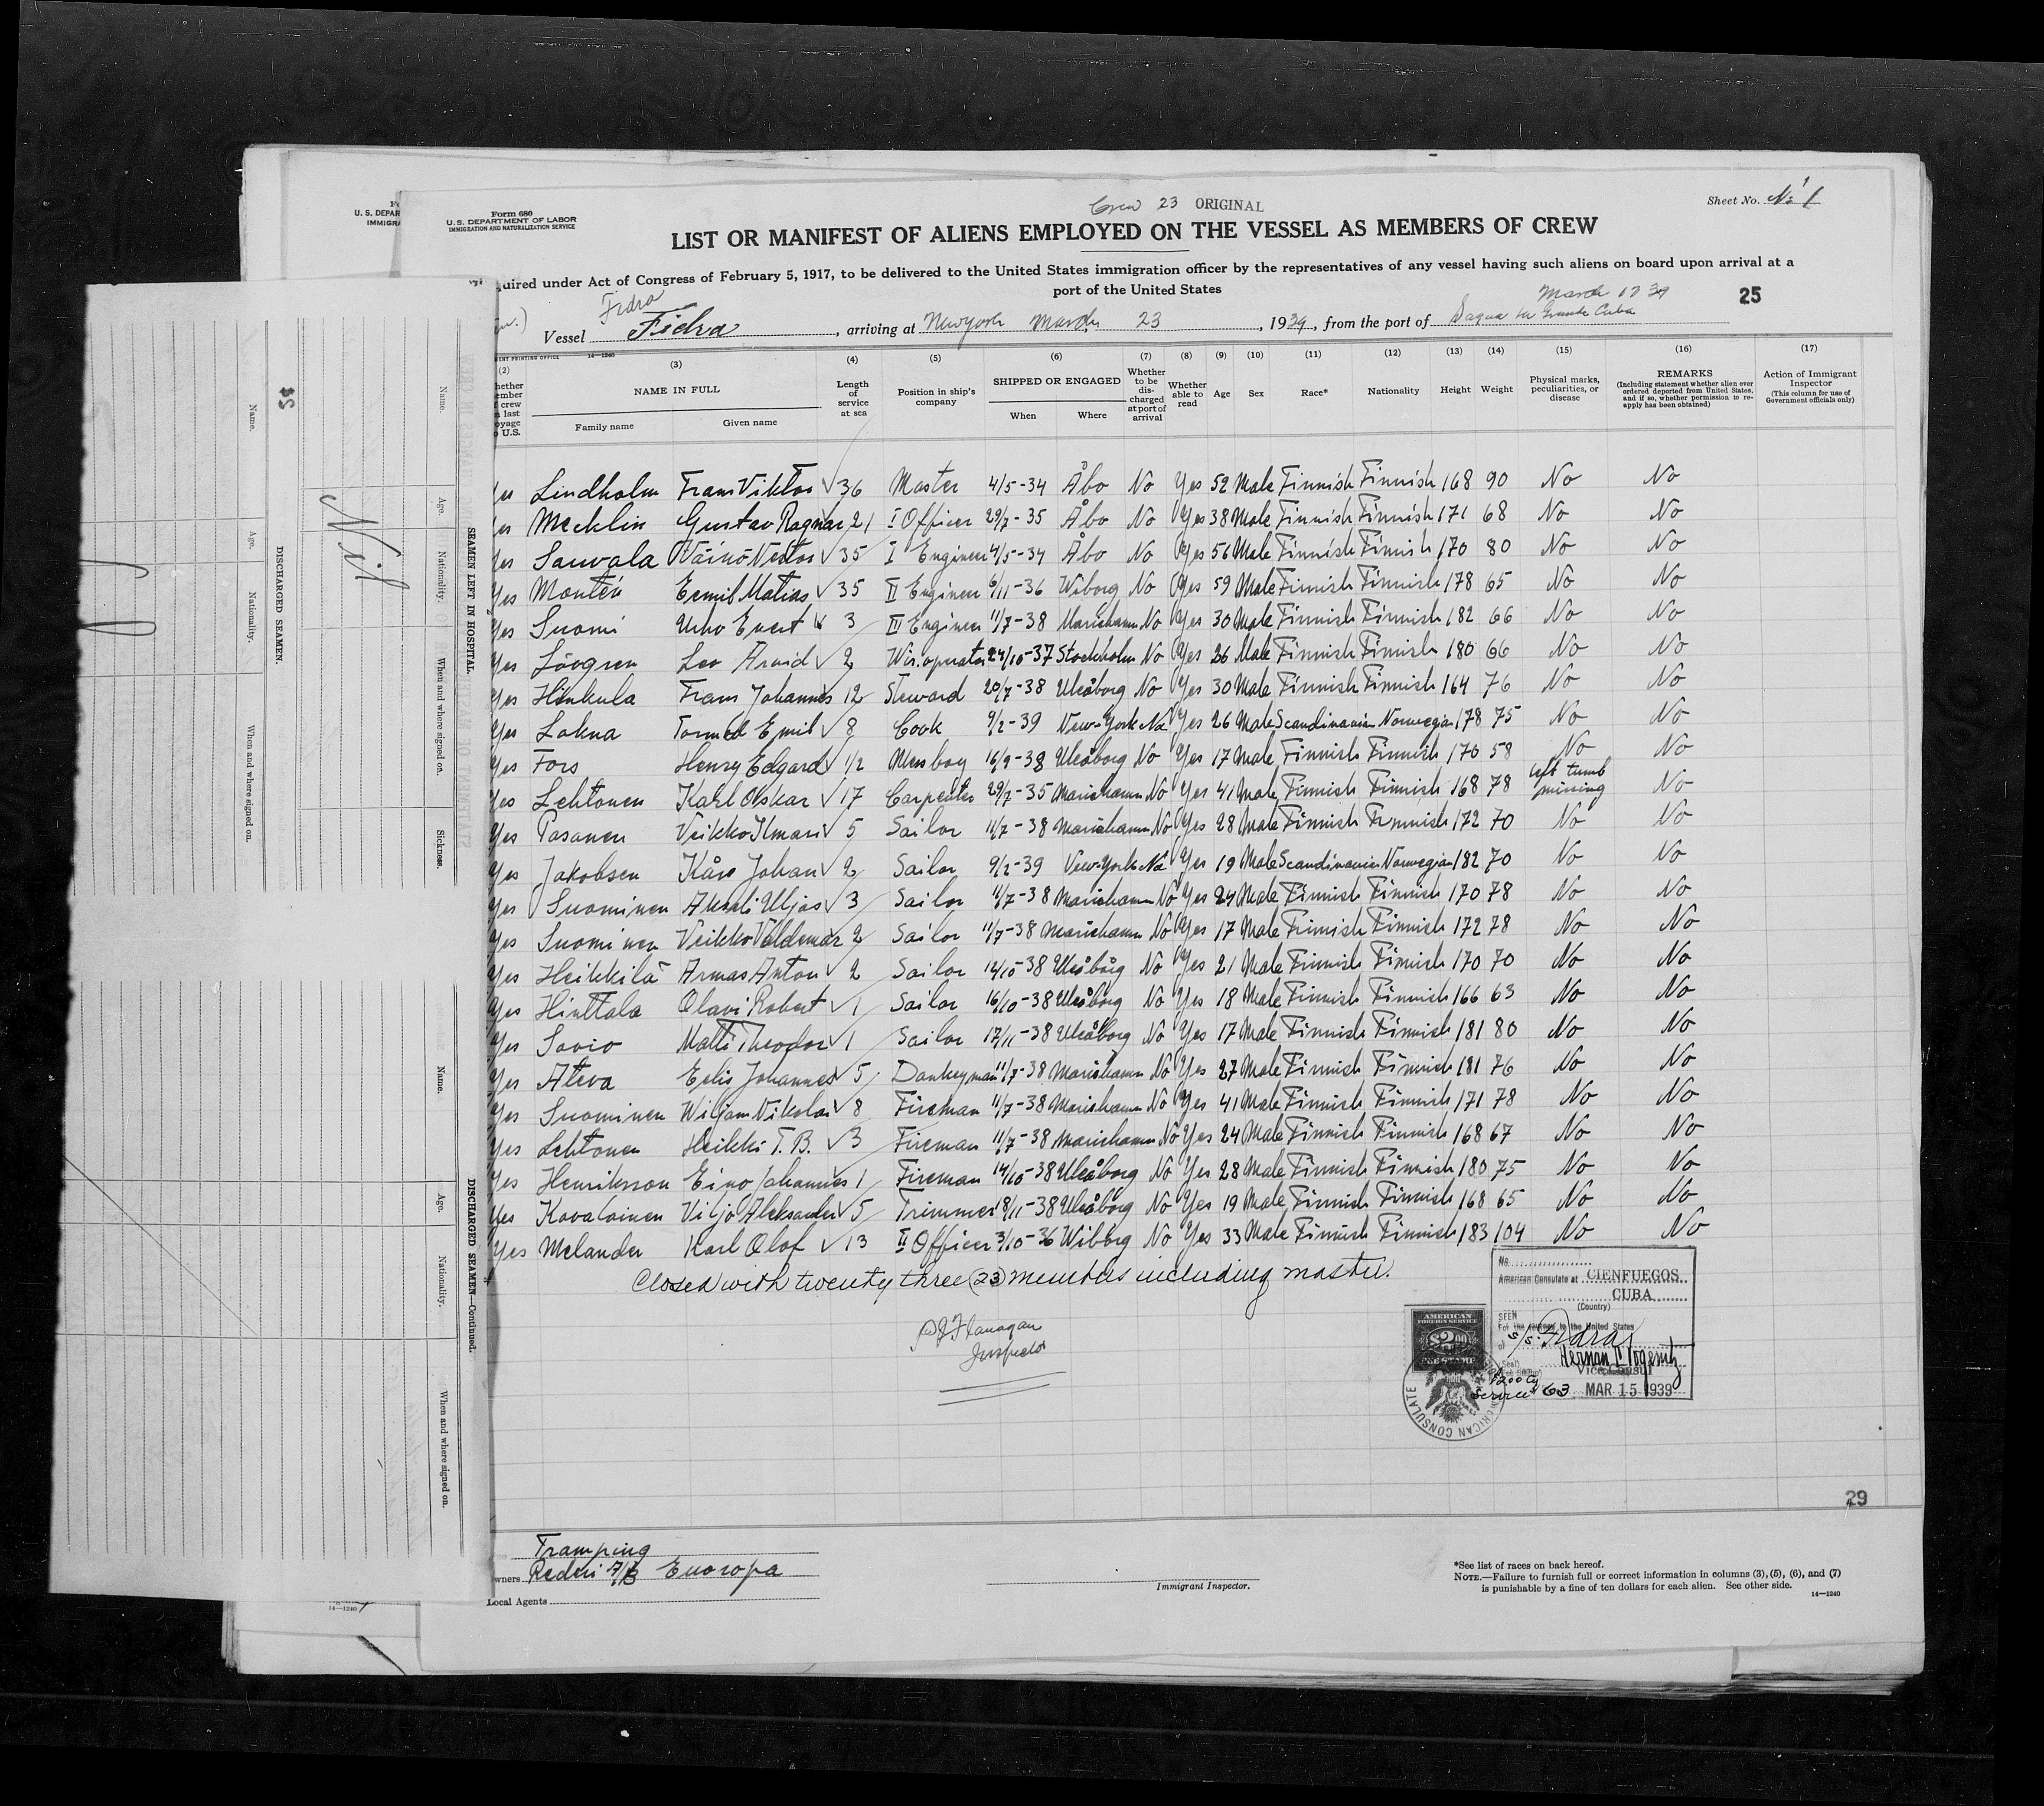 Form 680
U. S. DEPARTMENT OF LABOR
IMMIGRATION AND NATURALIZATION SERVICE
Crew 23 ORIGINAL
Sheet No. No 1
LIST OR MANIFEST OF ALIENS EMPLOYED ON THE VESSEL AS MEMBERS OF CREW
quired under Act of Congress of February 5, 1917, to be delivered to the United States immigration officer by the representatives of any vessel having such aliens on board upon arrival at a
port of the United States
25
Fidra
Vessel Fidra, arriving at New york March 23, 1939, from the port of Sagua La Grande Cuba
(2) (3) (4) (5) (6) (7) (8) (9) (10) (11) (12) (13) (14) (15) (16) (17)
NAME IN FULL
Family name Given name
Length of service at sea
Position in ship's company
SHIPPED OR ENGAGED
When Where
Whether to be discharged at port of arrival
Whether able to read
Age
Sex
Race*
Nationality
Height
Weight
Physical marks, peculiarities, or disease
REMARKS
(Including statement whether alien ever ordered deported from United States, and if so, whether permission to reapply has been obtained)
Action of Immigrant Inspector
(This column for use of Government officials only)
Yes Lindholm Frans Viktor √ 36 Master 4/5-34 Åbo No Yes 52 Male Finnish Finnish 168 90 No No
Yes Mecklin Gustav Ragnar 21 I Officer 29/7-35 Åbo No Yes 38 Male Finnish Finnish 171 68 No No
Yes Sauvala Väinö Viktor √ 35 I Engineer 4/5-34 Åbo No Yes 56 Male Finnish Finnish 170 80 No No
Yes Montén Eemil Matias √ 35 II Engineer 6/11-36 Wiborg No Yes 59 Male Finnish Finnish 178 65 No No
Yes Suomi Urho Evert 3 III Engineer 11/7-38 Mariehamn No Yes 30 Male Finnish Finnish 182 66 No No
Yes Lövgren Leo Arvid √ 2 Wir. operator 24/10-37 Stockholm No Yes 26 Male Finnish Finnish 180 66 No No
Yes Hinkula Frans Johannes 12 Steward 20/7-38 Uleåborg No Yes 30 Male Finnish Finnish 164 76 No No
Yes Lokna Tormod Emil √ 8 Cook 9/2-39 New-York No Yes 26 Male Scandinavian Norwegian 178 75 No No
Yes Fors Henry Edgard √ 1/2 Mess boy 16/9-38 Uleåborg No Yes 17 Male Finnish Finnish 170 58 No No
Yes Lehtonen Karl Oskar √ 17 Carpenter 29/7-35 Mariehamn No Yes 41 Male Finnish Finnish 168 78 left tumb missing No
Yes Pasanen Veikko Ilmari √ 5 Sailor 11/7-38 Mariehamn No Yes 28 Male Finnish Finnish 172 70 No No
Yes Jakobsen Kåre Johan √ 2 Sailor 9/2-39 New-York No Yes 19 Male Scandinavian Norwegian 182 70 No No
Yes Suominen Akseli Uljas √ 3 Sailor 11/7-38 Mariehamn No Yes 24 Male Finnish Finnish 170 78 No No
Yes Suominen Veikko Valdemar 2 Sailor 11/7-38 Mariehamn No Yes 17 Male Finnish Finnish 172 78 No No
Yes Heikkilä Armas Anton √ 2 Sailor 14/10-38 Uleåborg No Yes 21 Male Finnish Finnish 170 70 No No
Yes Hinttala Olavi Robert √ 1 Sailor 16/10-38 Uleåborg No Yes 18 Male Finnish Finnish 166 63 No No
Yes Savio Matti Theodor √ 1 Sailor 17/11-38 Uleåborg No Yes 17 Male Finnish Finnish 181 80 No No
Yes Ateva Eelis Johannes √ 5 Donkeyman 11/7-38 Mariehamn No Yes 27 Male Finnish Finnish 181 76 No No
Yes Suominen Wiljam Nikolai √ 8 Fireman 11/7-38 Mariehamn No Yes 41 Male Finnish Finnish 171 78 No No
Yes Lehtonen Heikki T. B. √ 3 Fireman 11/7-38 Mariehamn No Yes 24 Male Finnish Finnish 168 67 No No
Yes Henriksson Eino Johannes 1 Fireman 14/10-38 Uleåborg No Yes 28 Male Finnish Finnish 180 75 No No
Yes Kavalainen Viljo Aleksander √ 5 Trimmer 18/11-38 Uleåborg No Yes 19 Male Finnish Finnish 168 65 No No
Yes Melander Karl Olof √ 13 II Officer 3/10-36 Wiborg No Yes 33 Male Finnish Finnish 183 104 No No
Closed with twenty three (23) members including master.
Flanagan
Inspector
American Consulate at CIENFUEGOS
CUBA
(Country)
SEEN
For the journey to the United States
s/s. Fidra
Vice Consul
Service 63 MAR 15 1939
AMERICAN
FOREIGN SERVICE
$2.00
FEE STAMP
AMERICAN CONSULATE
29
Tramping
wners Rederi A/B Europa
Local Agents
Immigrant Inspector.
*See list of races on back hereof.
NOTE.—Failure to furnish full or correct information in columns (3), (5), (6), and (7)
is punishable by a fine of ten dollars for each alien. See other side.
14—1240
SEAMEN LEFT IN HOSPITAL.
Name. Age. Nationality. When and where signed on. Sickness.
Nil
DISCHARGED SEAMEN.
Name. Age. Nationality. When and where signed on.
DISCHARGED SEAMEN—Continued.
Name. Age. Nationality. When and where signed on.